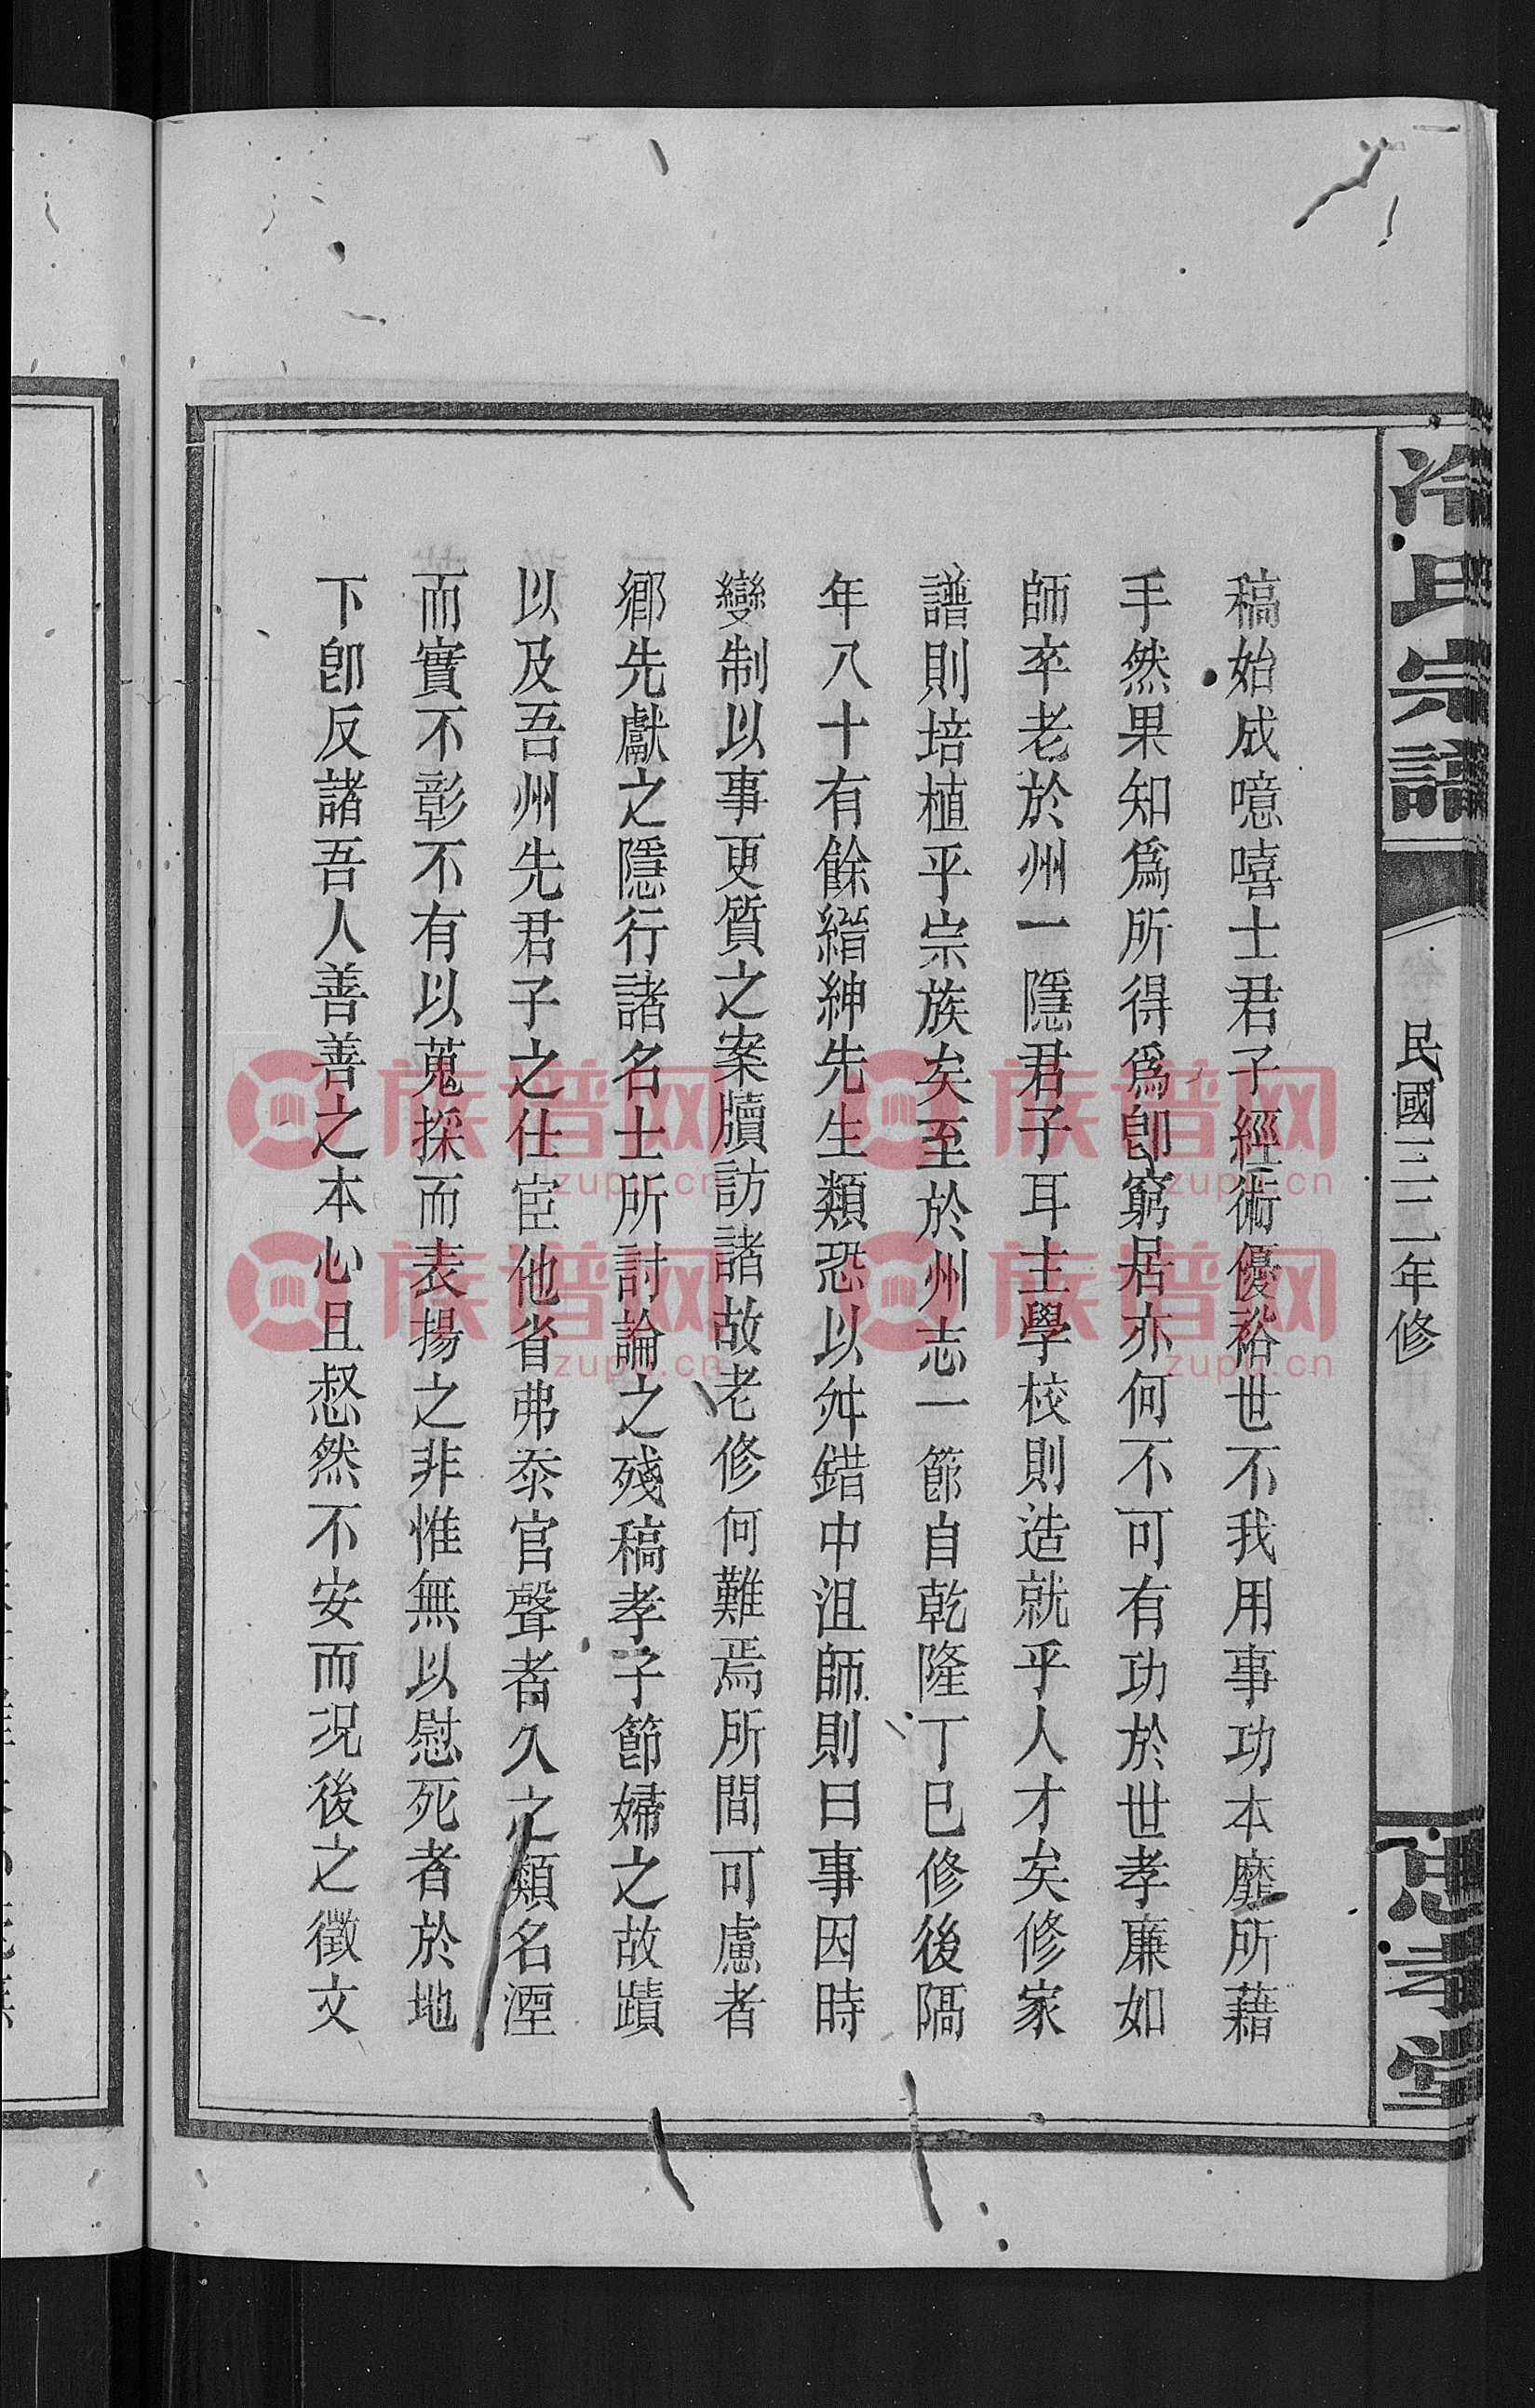 冷氏宗譜
民國三二年修
思孝堂
稿始成噫嘻士君子經術優裕世不我用事功本靡所藉
手然果知爲所得爲卽窮居亦何不可有功於世孝廉如
師卒老於州一隱君子耳主學校則造就乎人才矣修家
譜則培植乎宗族矣至於州志一節自乾隆丁巳修後隔
年八十有餘縉紳先生類恐以舛錯中沮師則曰事因時
變制以事更質之案牘訪諸故老修何難焉所間可慮者
鄉先獻之隱行諸名士所討論之殘稿孝子節婦之故蹟
以及吾州先君子之仕宦他省弗忝官聲者久之類名湮
而實不彰不有以蒐採而表揚之非惟無以慰死者於地
下卽反諸吾人善善之本心且惄然不安而况後之徵文
族谱网
zupu.cn
族谱网
zupu.cn
族谱网
zupu.cn
族谱网
zupu.cn